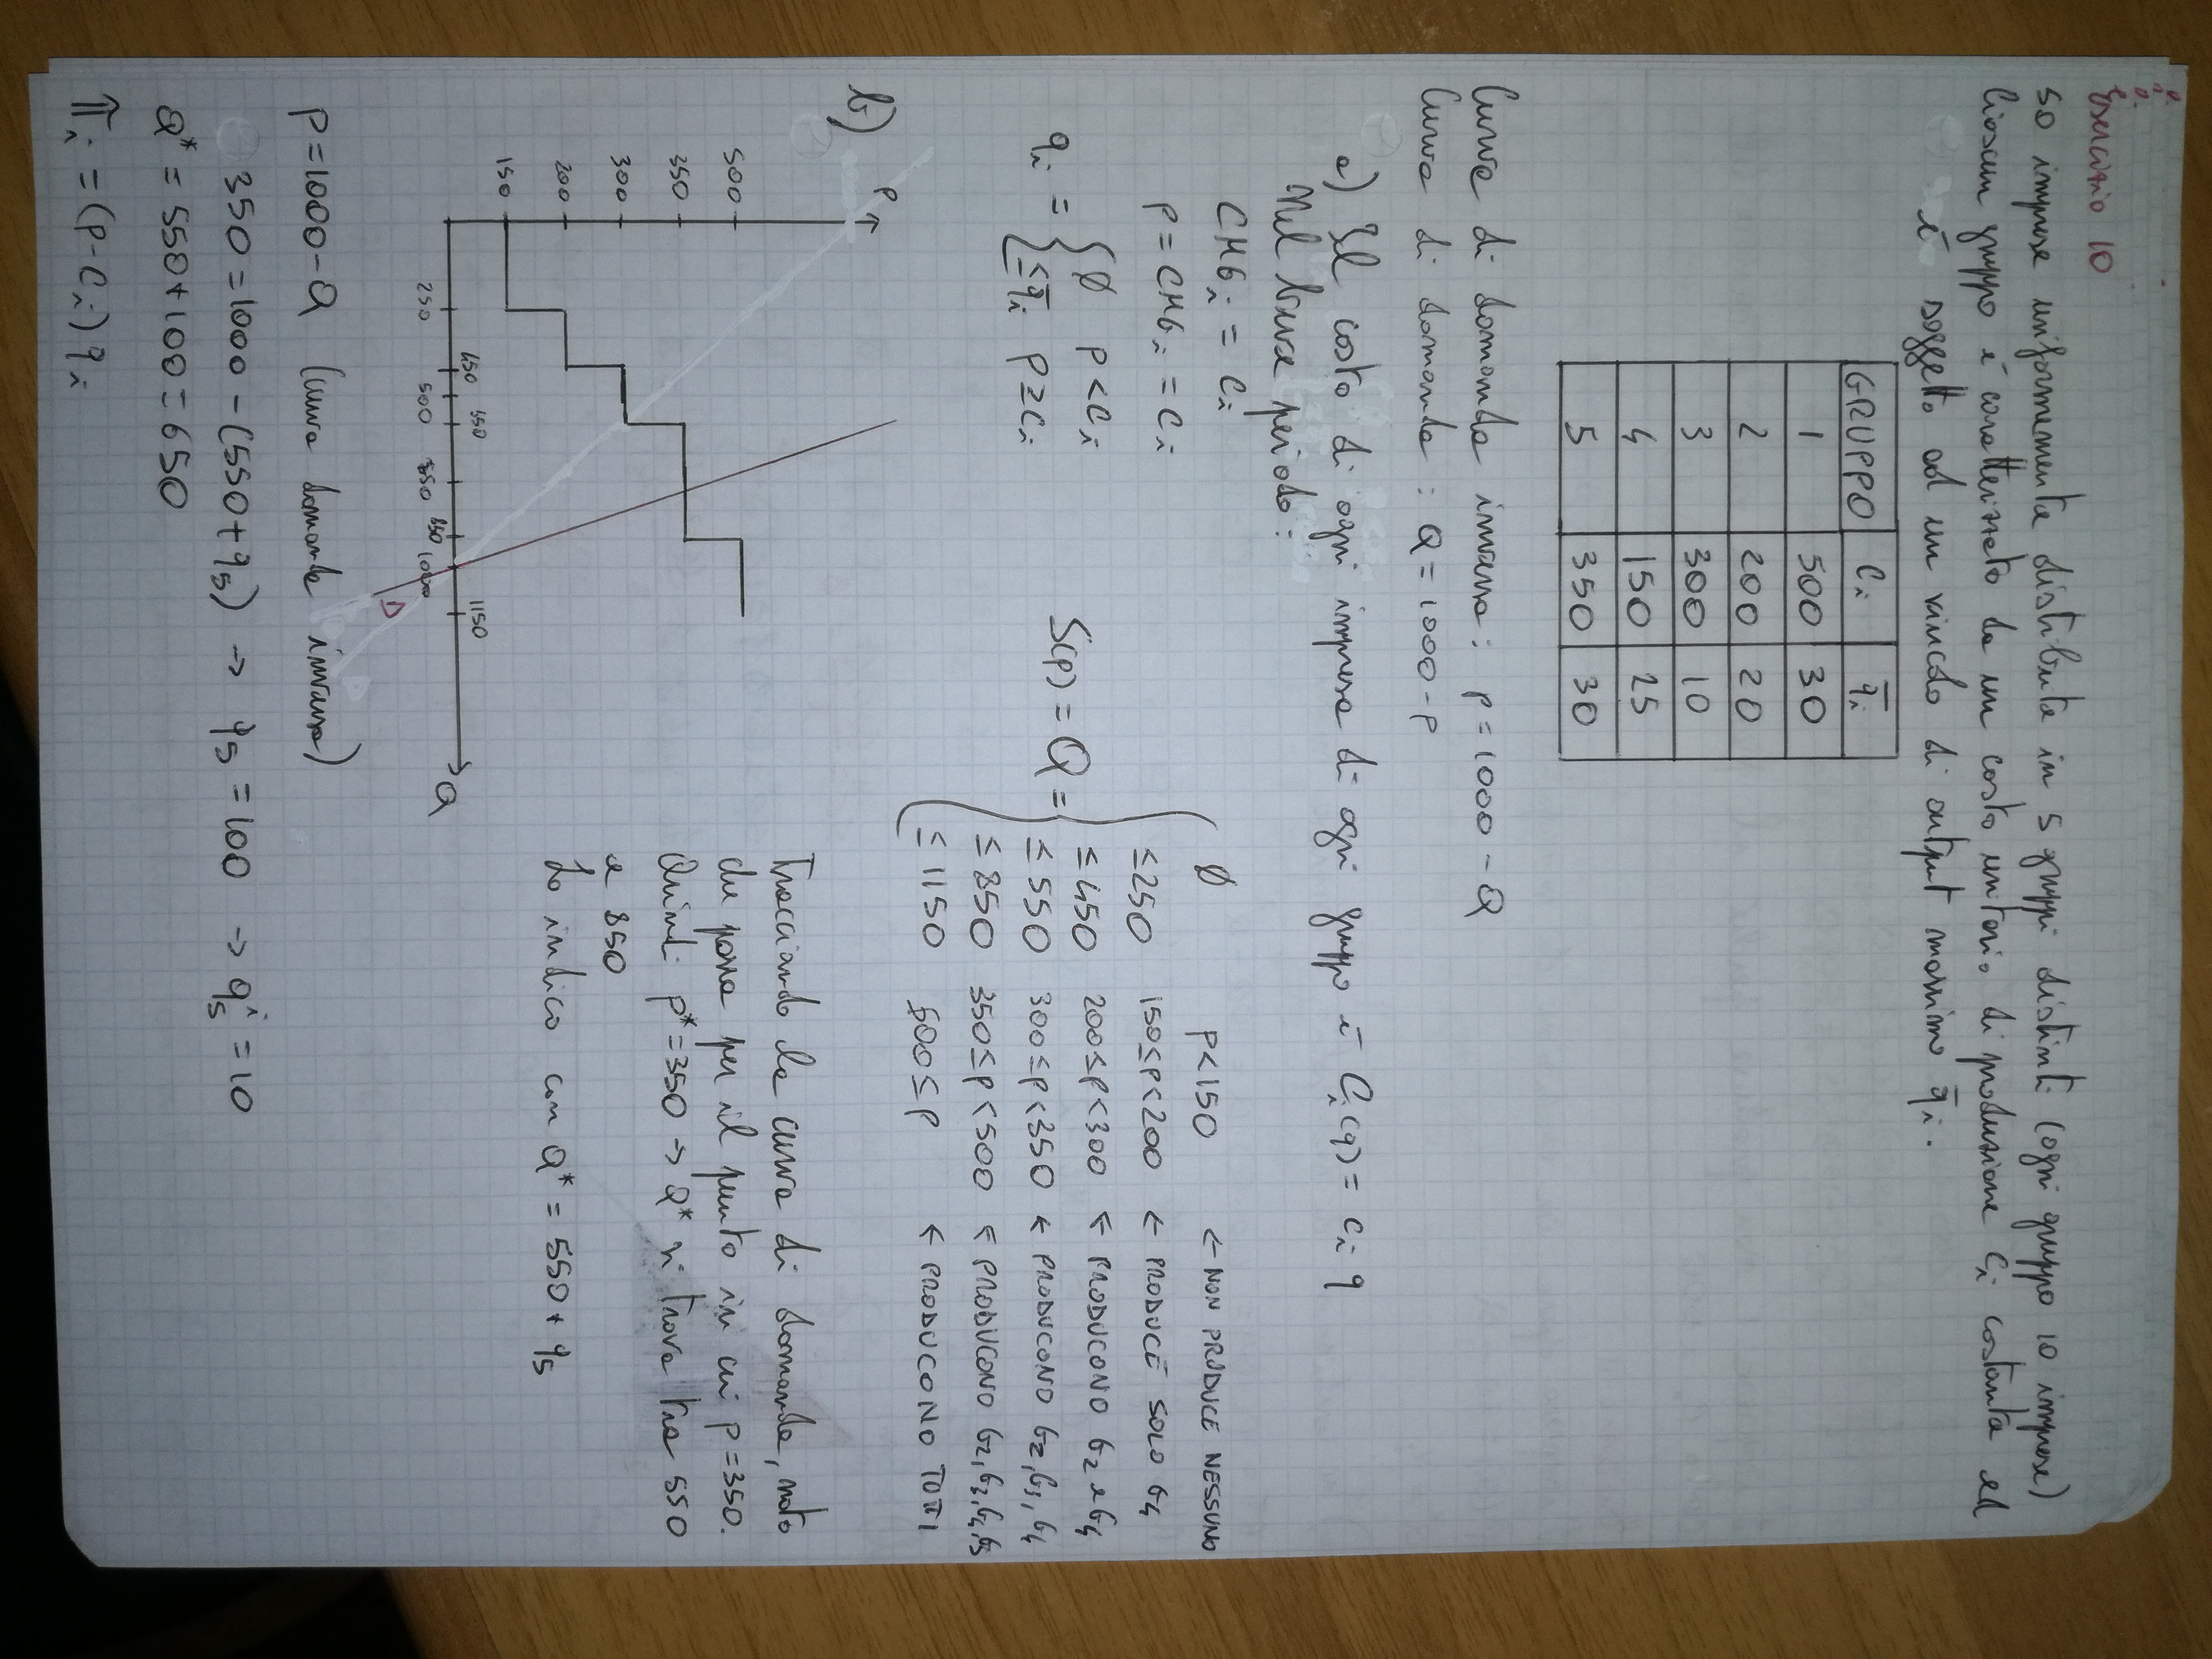 Esercizio 10
50 imprese uniformemente distribuite in 5 gruppi distinti (ogni gruppo 10 imprese)
Ciascun gruppo è caratterizzato da un costo unitario di produzione Ci costante ed
è soggetto ad un vincolo di output massimo q̄i.
GRUPPO Ci q̄i
1 500 30
2 200 20
3 300 10
4 150 25
5 350 30
Curva di domanda inversa: p = 1000 - Q
Curva di domanda: Q = 1000 - p
a) Il costo di ogni impresa di ogni gruppo è Ci(q) = ci q
Nel breve periodo:
CMGi = Ci
p = CMGi = Ci
qi = { Ø p < Ci
≤ q̄i p ≥ Ci
S(p) = Q = { Ø p < 150 ← NON PRODUCE NESSUNO
≤ 250 150 ≤ p < 200 ← PRODUCE SOLO G4
≤ 450 200 ≤ p < 300 ← PRODUCONO G2 e G4
≤ 550 300 ≤ p < 350 ← PRODUCONO G2, G3, G4
≤ 850 350 ≤ p < 500 ← PRODUCONO G2, G3, G4, G5
≤ 1150 500 ≤ p ← PRODUCONO TUTTI
b)
P
500
350
300
200
150
450 550 1150
250 500 850 1000
Q
D
Tracciando la curva di domanda, noto
che passa per il punto in cui p = 350.
Quindi p* = 350 → Q* si trova tra 550
e 850
Lo indico con Q* = 550 + q5
p = 1000 - Q (curva domanda inversa)
350 = 1000 - (550 + q5) → q5 = 100 → q5^i = 10
Q* = 550 + 100 = 650
πi = (p - Ci) qi